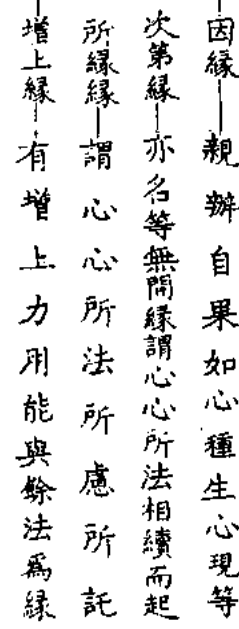 因縁——親辦自果如心種生心現等
次第縁——亦名等無間縁謂心心所法相續而起
所縁縁——謂心心所法所慮所託
增上縁——有增上力用能與餘法為縁